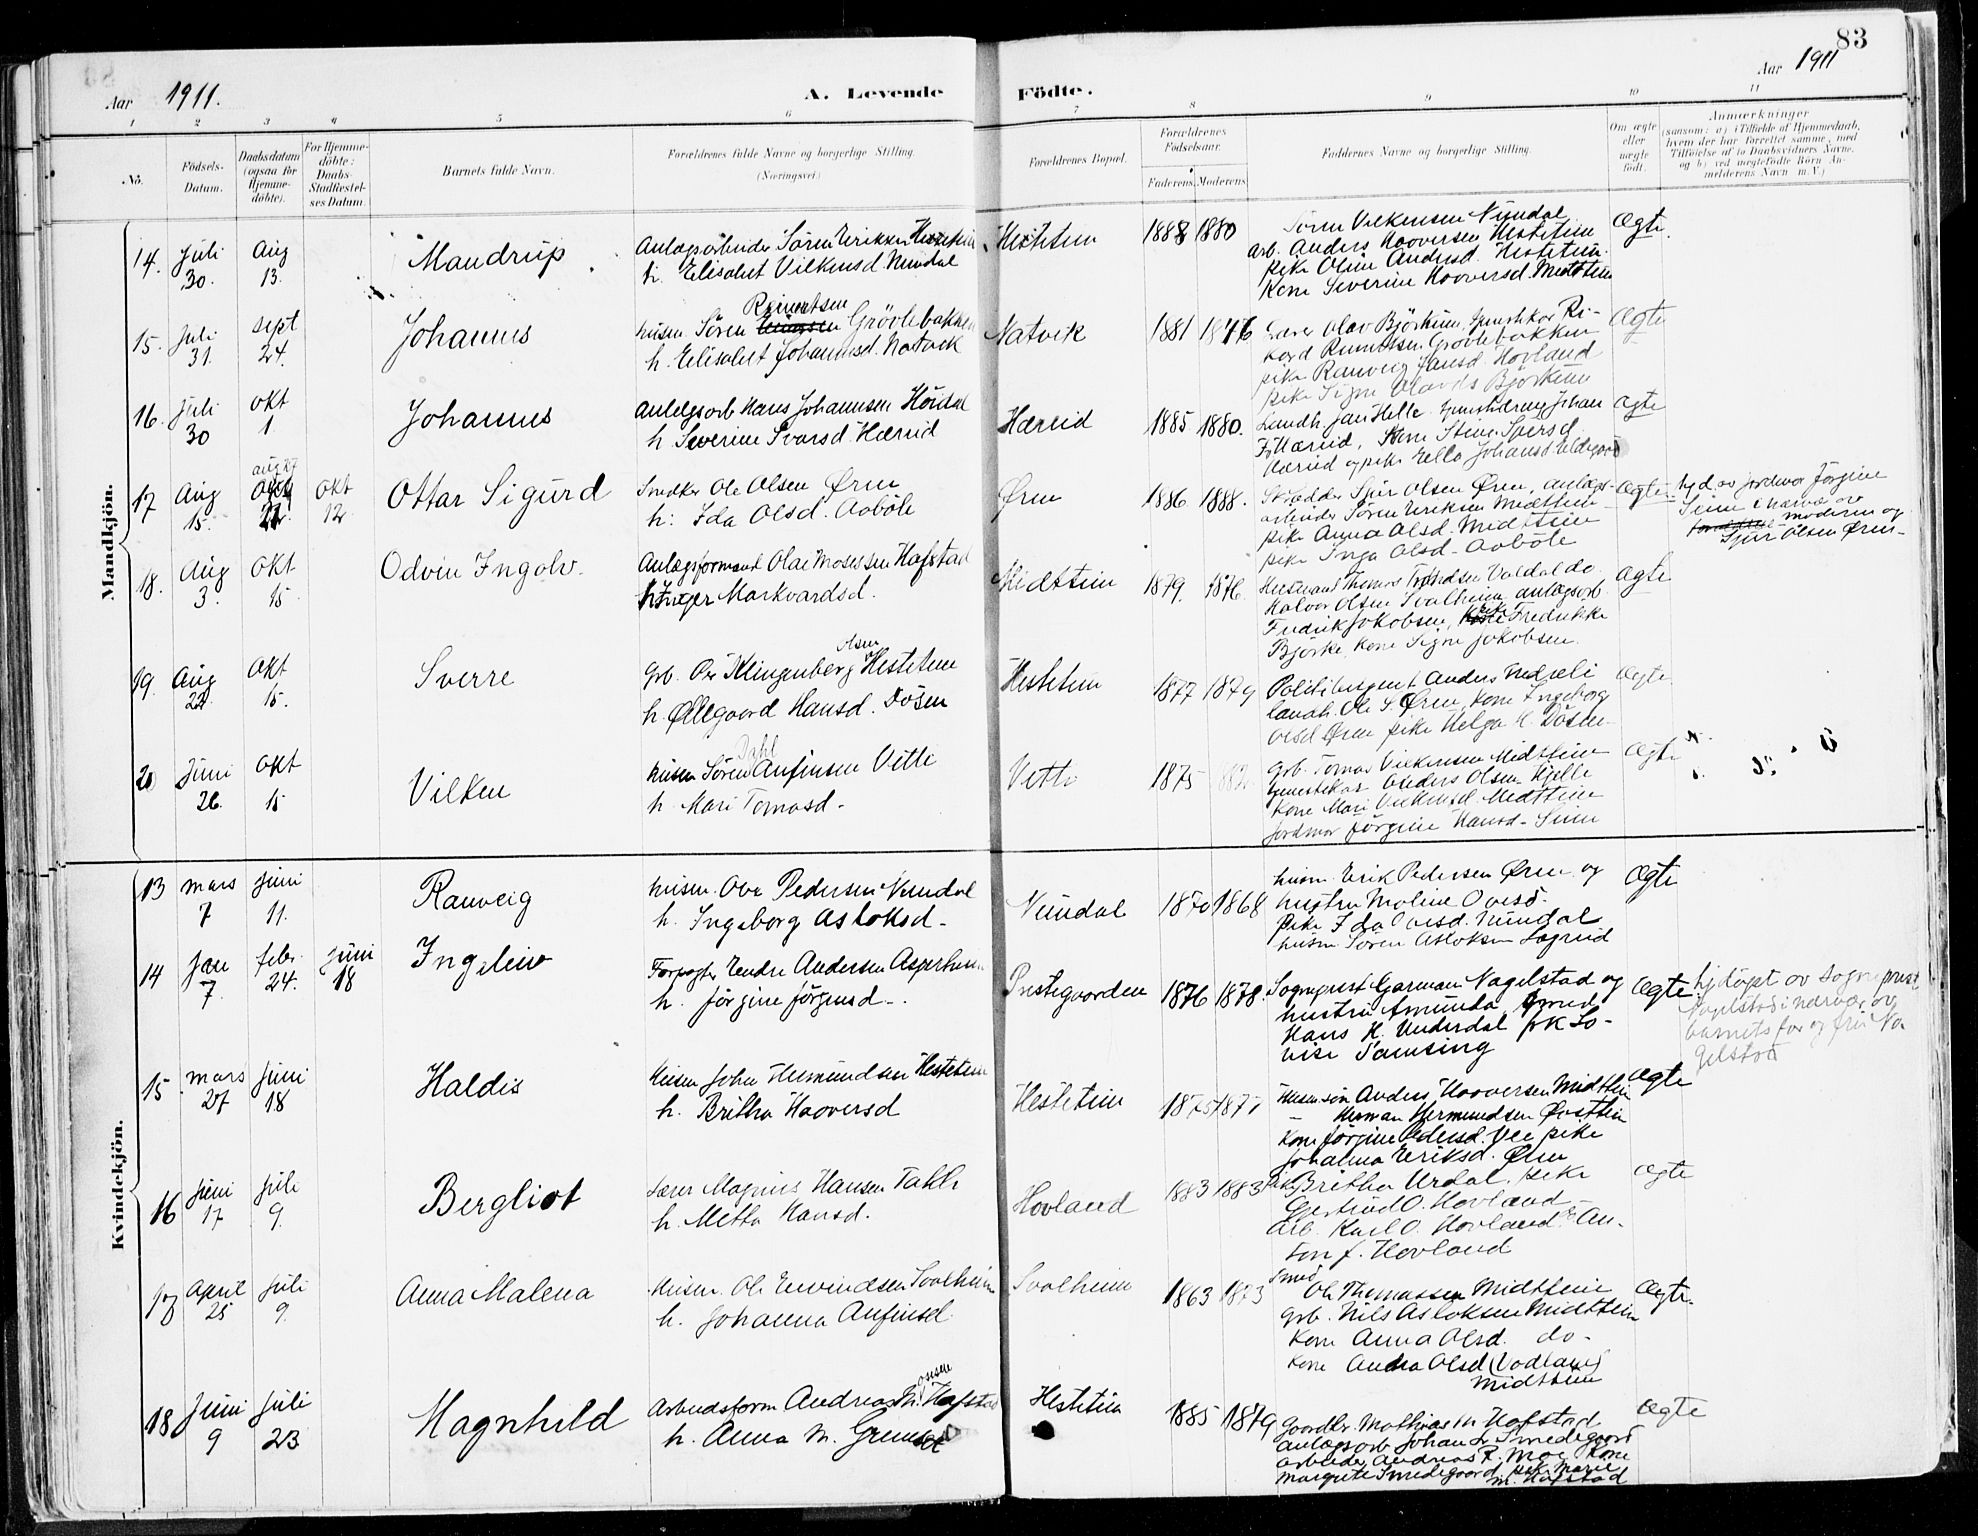 83
Aar 1911. A. Levende Födte. Aar 1911
1 2 3 4 5 6 7 8 9 10 11
No.
Födsels-Datum.
Daabsdatum (ogsaa för Hjemme-döbte).
For Hjemme-döbte: Daabs-Stadfæstel-ses Datum.
Barnets fulde Navn.
Forældrenes fulde Navne og borgerlige Stilling.
(Næringsvei.)
Forældrenes Bopæl.
Forældrenes Födselsaar.
Faderens. Moderens.
Faddernes Navne og borgerlige Stilling.
Om ægte eller uægte födt.
Anmærkninger
(saasom: a) i Tilfælde af Hjemmedaab, hvem der har forrettet samme, med Tilföielse af to Daabsvidners Navne, og b) ved uegtefödte Börn An-melderens Navn m. V.)
Mandkjön.
14. Juli 30. Aug 13. Mandrup
Anlægsarbeider Sören Eriksen Hestetein
h. Elisabet Vilkensd. Nundal
Hestetein 1888 1880
Sören Vilkensen Nundal
arb. Anders Haaversen Hestetein
pike Oline Andersd. Hestetein
Kone Severine Haaversd. Midttein
Ægte.
15. Juli 31. Sept 24. Johannes
Reinertsen
husm Sören Grövlebakken
h. Elisabet Johannesd. Natvik
Natvik 1881 1876
Lærer Olav Björkum,
Grövlebakken
pike Ranveig Jansd. Hovland
pike Signe Olavds Björkum
Ægte
16. Juli 30 Okt 1 Johannes
Anlegsarb Hans Johannesen Höidal
h. Severine Ivarsd. Hæreid
Hæreid 1885 1880.
Landh. Jan Helle
Hæreid og pike Ella Johansd.
Ægte
17 Aug 15. aug 27 Okt 12. Ottar Sigurd
Snedker Ole Olsen Øren
h: Ida Olsd. Aaböle
Øren 1886 1888.
Skrædder Sjur Olsen Øren, anlægs-
arbeider Sören Eriksen Midttein
pike Anna Olsd. Midttein
pike Inga Olsd. Aaböle
Ægte
hjd. av jordmor Jörgine
moderen og
Sjur Olsen Øren
18. Aug 3. Okt 15. Odvin Ingolv.
Anlægsformand Olai Mosessen Hafstad
h. Inger Markvardsd.
Midttein 1879. 1876.
Halvor Olsen Svalheim, anlægsarb.
Fredrik Jakobsen, pike Fredrikke
Björke, kone Signe Jakobsen.
Ægte
19. Aug 22. Okt 15. Sverre
Olsen
Grb. Per Klingenberg Hestetein
h. Øllegaard Hansd. Dösen
Hestetein 1877 1879
Politibetjent Anders Nedreli
landh. Ole S. Øren, Kone Ingeborg
Olsd Øren pike Helga H. Dösen
Ægte
20 Juni 26. Okt 15 Vilken
Dahl
husm Sören Anfinsen Vetti
h. Mari Tomasd.
Vetti 1875
Grb. Tomas Vilkensen Midttein
Anders Olsen Hjelle
Kone Mari Vilkensd. Midttein
Jordmor Jörgine Hansd.
Ægte
Kvindekjön.
13 Mars 7 Juni 11. Ranveig
husm. Ove Pedersen Nundal
h. Ingeborg Aslaksd.
Nundal 1870 1868
husm. Erik Pedersen Øren og
hustru Moline Ovesd.
Pike Ida Ovesd. Nundal
husm Sören Aslaksen Lægreid
Ægte
14 Jan 7. febr. 24. Juni 18 Ingeleiv
Forpagter Endre Andersen Asperheim
h. Jörgine Jörgensd.
Prestegaarden 1876 1878.
Sogneprest Garman Nagelstad og
hustru Amunda,
Hans H. Underdal frk Lo-
vise Samsing
Ægte
hjdöpt av sogneprest
Nagelstad i nærvær av
barnets far og fru Na-
gelstad
15 Mars 27 Juni 18 Haldis
Husm John Hermundsen Hestetein
h. Britha Haaversd
Hestetein 1875 1877
Husm. sön Anders Haaversen Midttein
Herman Hermundsen Øvsttein
Kone Jörgine Pedersd. Vee pike
Johanna Eriksd. Øren
Ægte
16 Juni 17 Juli 9. Bergliot
Lærer Magnus Hansen Tahle
h. Metta Hansd.
Hovland 1883 1883
Britha Urdal, pike
Gjertrud O. Hovland
Arb. Karl O. Hovland An-
ton J. Hovland
Ægte
17 April 25 Juli 9. Anna Malena
Husm. Ole Eivindsen Svalheim
h. Johanna Anfinsd.
Svalheim 1863 1873
Smed
Ole Thomassen Midttein
Grb. Nils Aslaksen Midttein
Kone Anna Olsd. do.
Kone Andrea Olsd. Vadland
Midttein
Ægte.
18 Juni 9 Juli 23 Magnhild
Arbeidsform Andreas M. Hafstad
h. Anna M.
Hestetein 1885 1879
Gaardbr. Mathias M Hafstad
anlægsarb Johan Smedegaard
arbeider Andreas R. Moe Kone
Margrete Smedegaard, pike Marie
M. Hafstad
Ægte